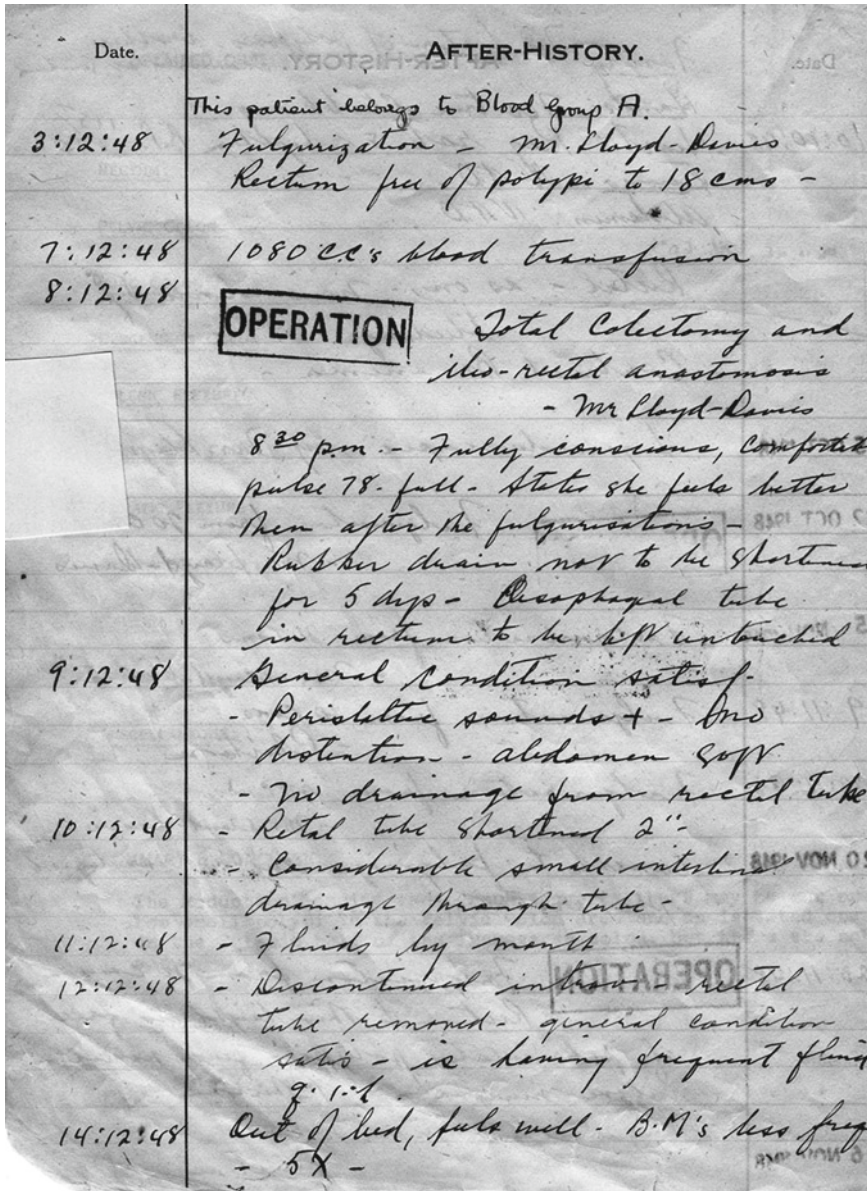 Date. AFTER-HISTORY.
This patient belongs to Blood Group A.
3:12:48 Fulgurization - Mr. Lloyd-Davies
Rectum free of polypi to 18 cms -
7:12:48 1080 CC's blood transfusion
8:12:48
OPERATION Total Colectomy and
ileo-rectal anastomosis
- Mr Lloyd-Davies
8 30 p.m. - Fully conscious, comfortable
pulse 78. full - States she feels better
then after the fulgurisations -
Rubber drain not to be shortened
for 5 days - Oesophageal tube
in rectum to be left untouched
9:12:48 General Condition satisf-
- Peristaltic sounds + - no
distention - abdomen soft
- No drainage from rectal tube
10:12:48 - Retal tube shortened 2" -
- Considerable small intestinal
drainage through tube -
11:12:48 - Fluids by mouth
12:12:48 - Discontinued intrav - rectal
tube removed - general condition
satis - is having frequent fluid
14:12:48 Out of bed, feels well - B.M's less freq
- 5X -
OPERATION
20 NOV 1948
2 OCT 1948